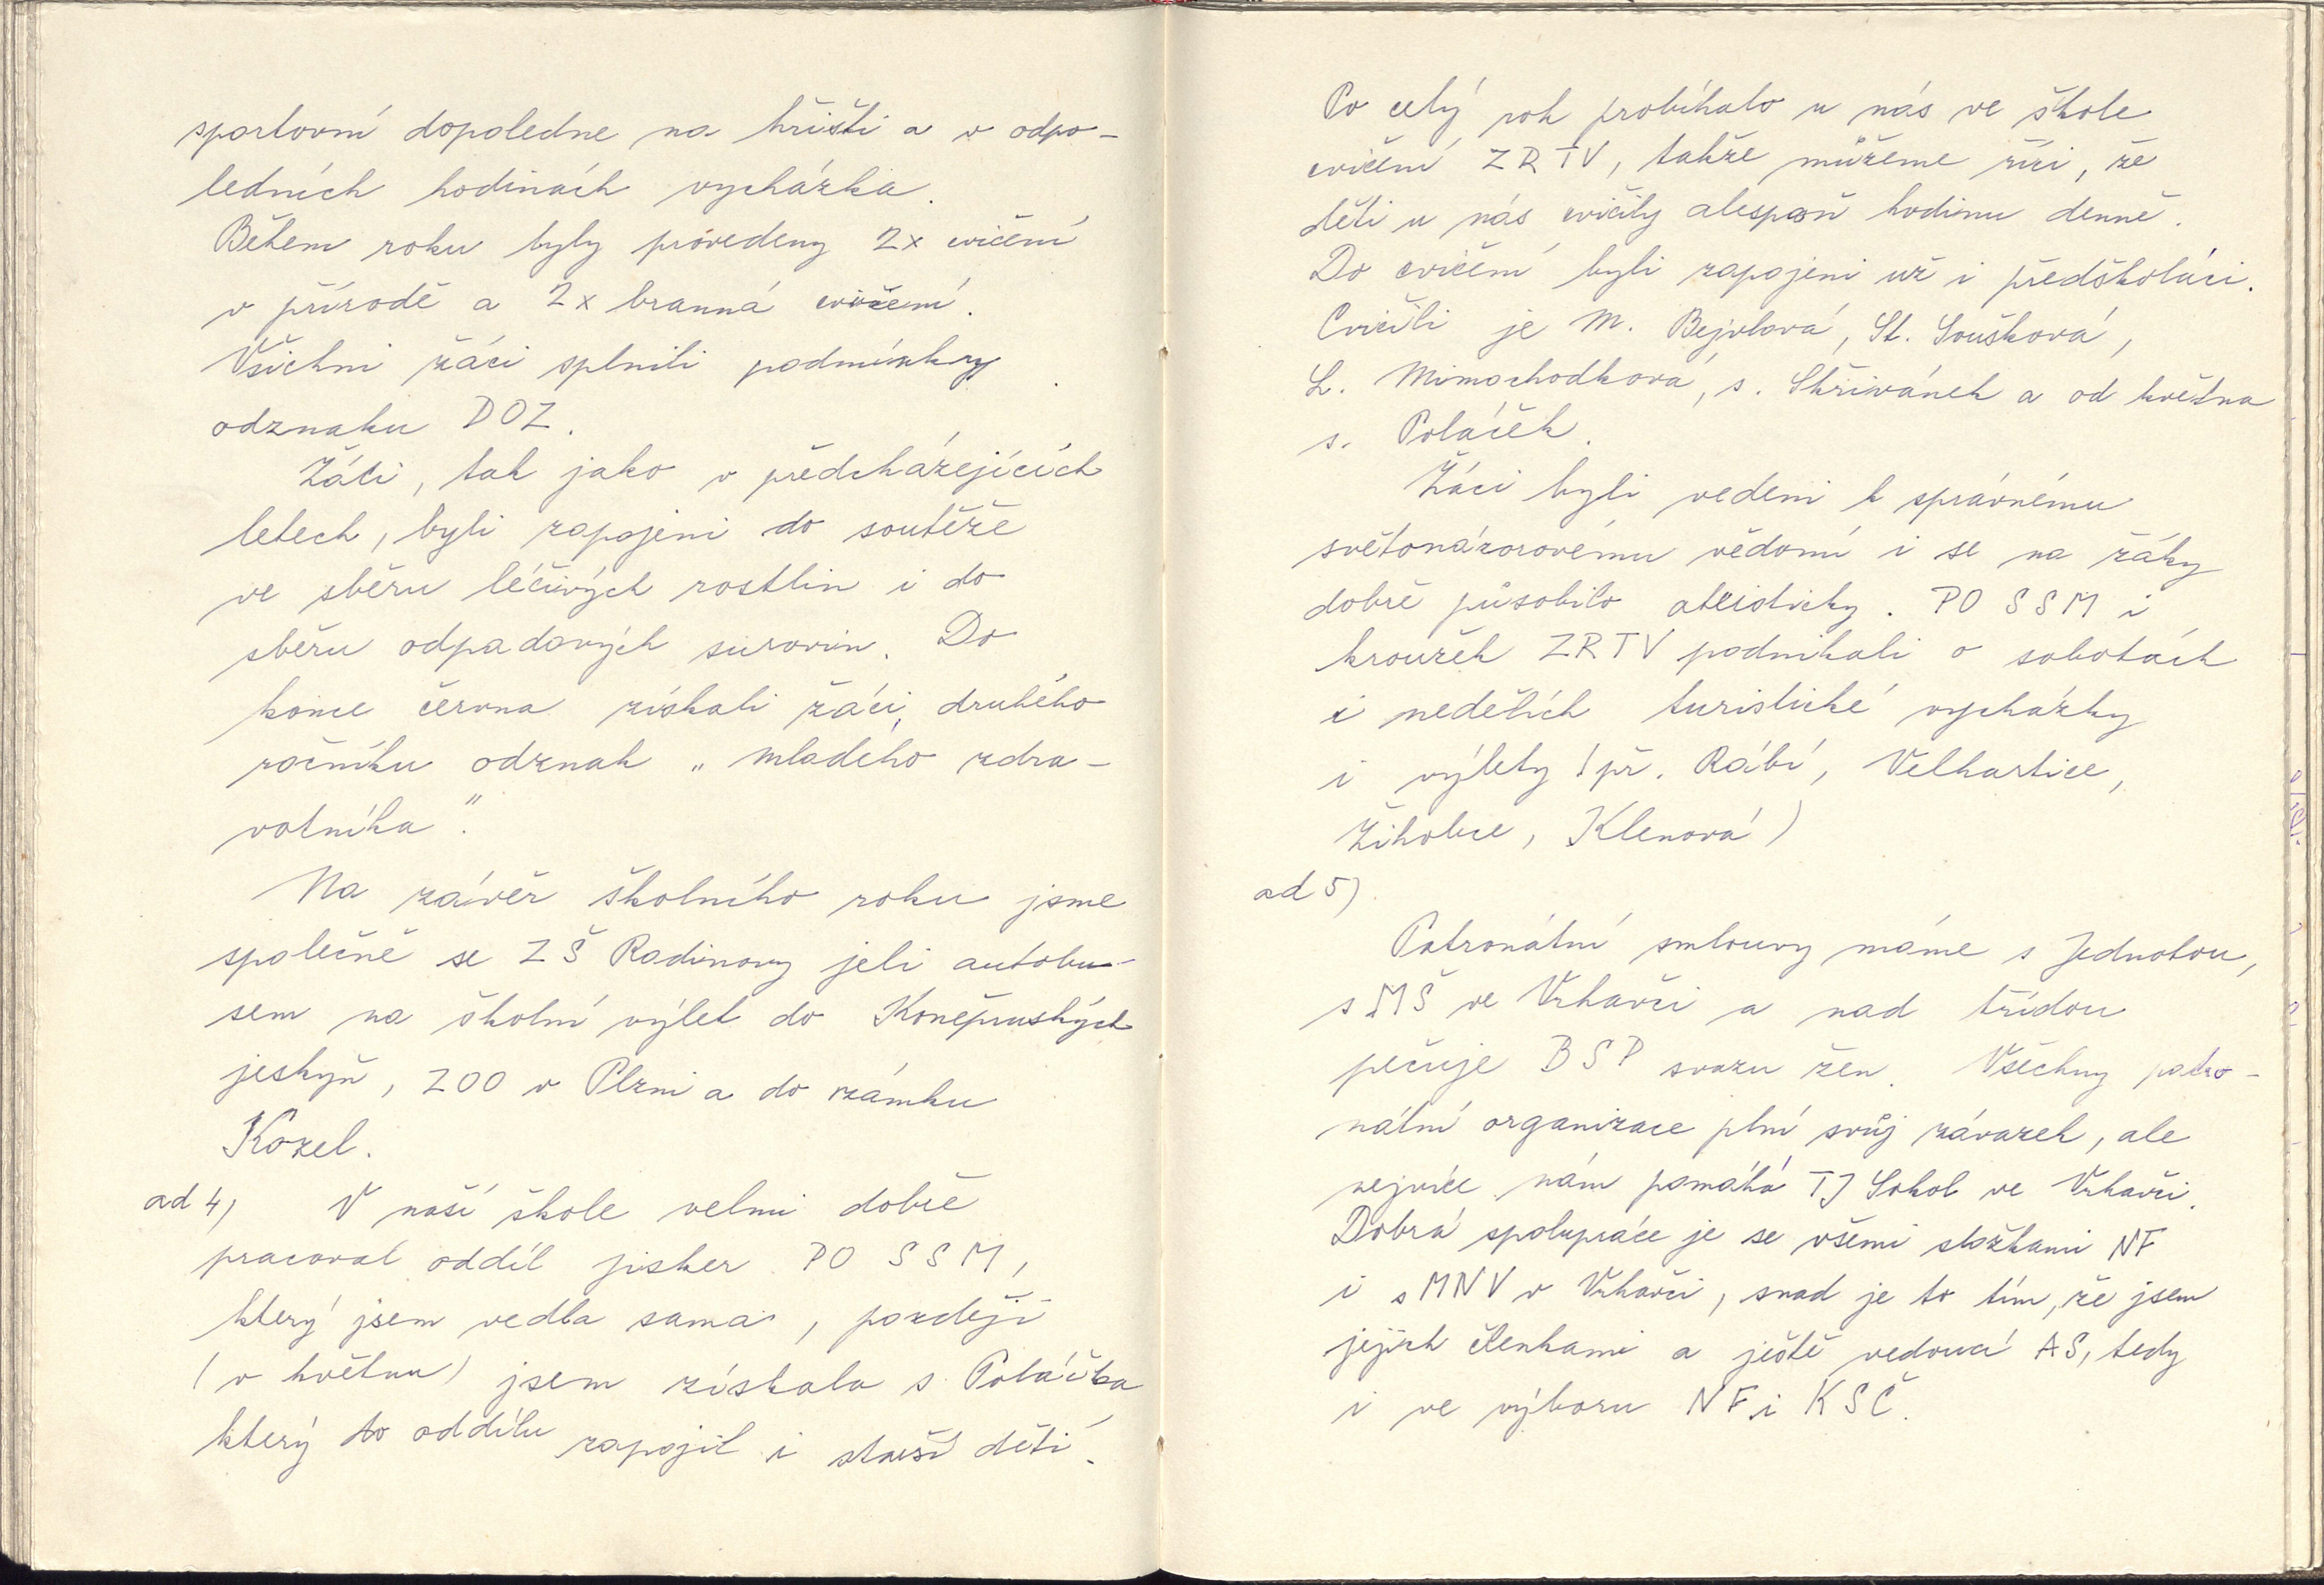 sportovní dopoledne na hřišti a v odpo-
ledních hodinách vycházka.
Během roku byly provedeny 2x cvičení
v přírodě a 2x branná cvičení.
Všichni žáci splnili podmínky
odznaku DOZ.
Žáci, tak jako v předcházejících
letech, byli zapojeni do soutěže
ve sběru léčivých rostlin i do
sběru odpadových surovin. Do
konce června získali žáci druhého
ročníku odznak „mladého zdra-
votníka".
Na závěr školního roku jsme
společně se ZŠ Radinovy jeli autobu-
sem na školní výlet do Koněpruských
jeskyň, ZOO v Plzni a do zámku
Kozel.
ad 4) V naší škole velmi dobře
pracoval oddíl jisker PO SSM,
který jsem vedla sama, později
(v květnu) jsem získala s. Poláčka
který do oddílu zapojil i starší děti.
Po celý rok probíhalo u nás ve škole
cvičení ZRTV, takže můžeme říci, že
děti u nás cvičily alespoň hodinu denně.
Do cvičení byli zapojeni už i předškoláci.
Cvičili je M. Bejvlová, St. Soušková,
L. Mimochodková, s. Skřivánek a od května
s. Poláček.
Žáci byli vedeni k správnému
světonázorovému vědomí i se na žáky
dobře působilo ateisticky. PO SSM i
kroužek ZRTV podnikali o sobotách
i nedělích turistické vycházky
i výlety (př. Rábí, Velhartice,
Žihobce, Klenová)
ad 5)
Patronátní smlouvy máme s Jednotou,
s MŠ ve Vrhavči a nad třídou
pečuje BSP svazu žen. Všechny patro-
nátní organizace plní svůj závazek, ale
nejvíce nám pomáhá TJ Sokol ve Vrhavči.
Dobrá spolupráce je se všemi složkami NF
i s MNV v Vrhavči, snad je to tím, že jsem
jejich členkami a ještě vedoucí AS, tedy
i ve výboru NF i KSČ.